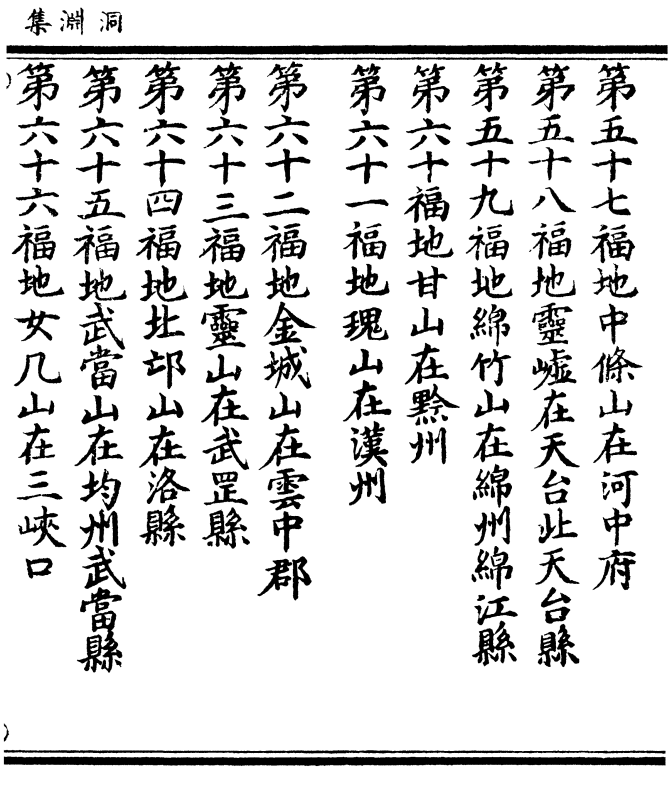 洞淵集
第五十七福地中條山在河中府
第五十八福地靈嶟在天台北天台縣
第五十九福地綿竹山在綿州綿江縣
第六十福地甘山在黔州
第六十一福地瑰山在漢州
第六十二福地金城山在雲中郡
第六十三福地靈山在武罡縣
第六十四福地北邙山在洛縣
第六十五福地武當山在均州武當縣
第六十六福地女几山在三峽口